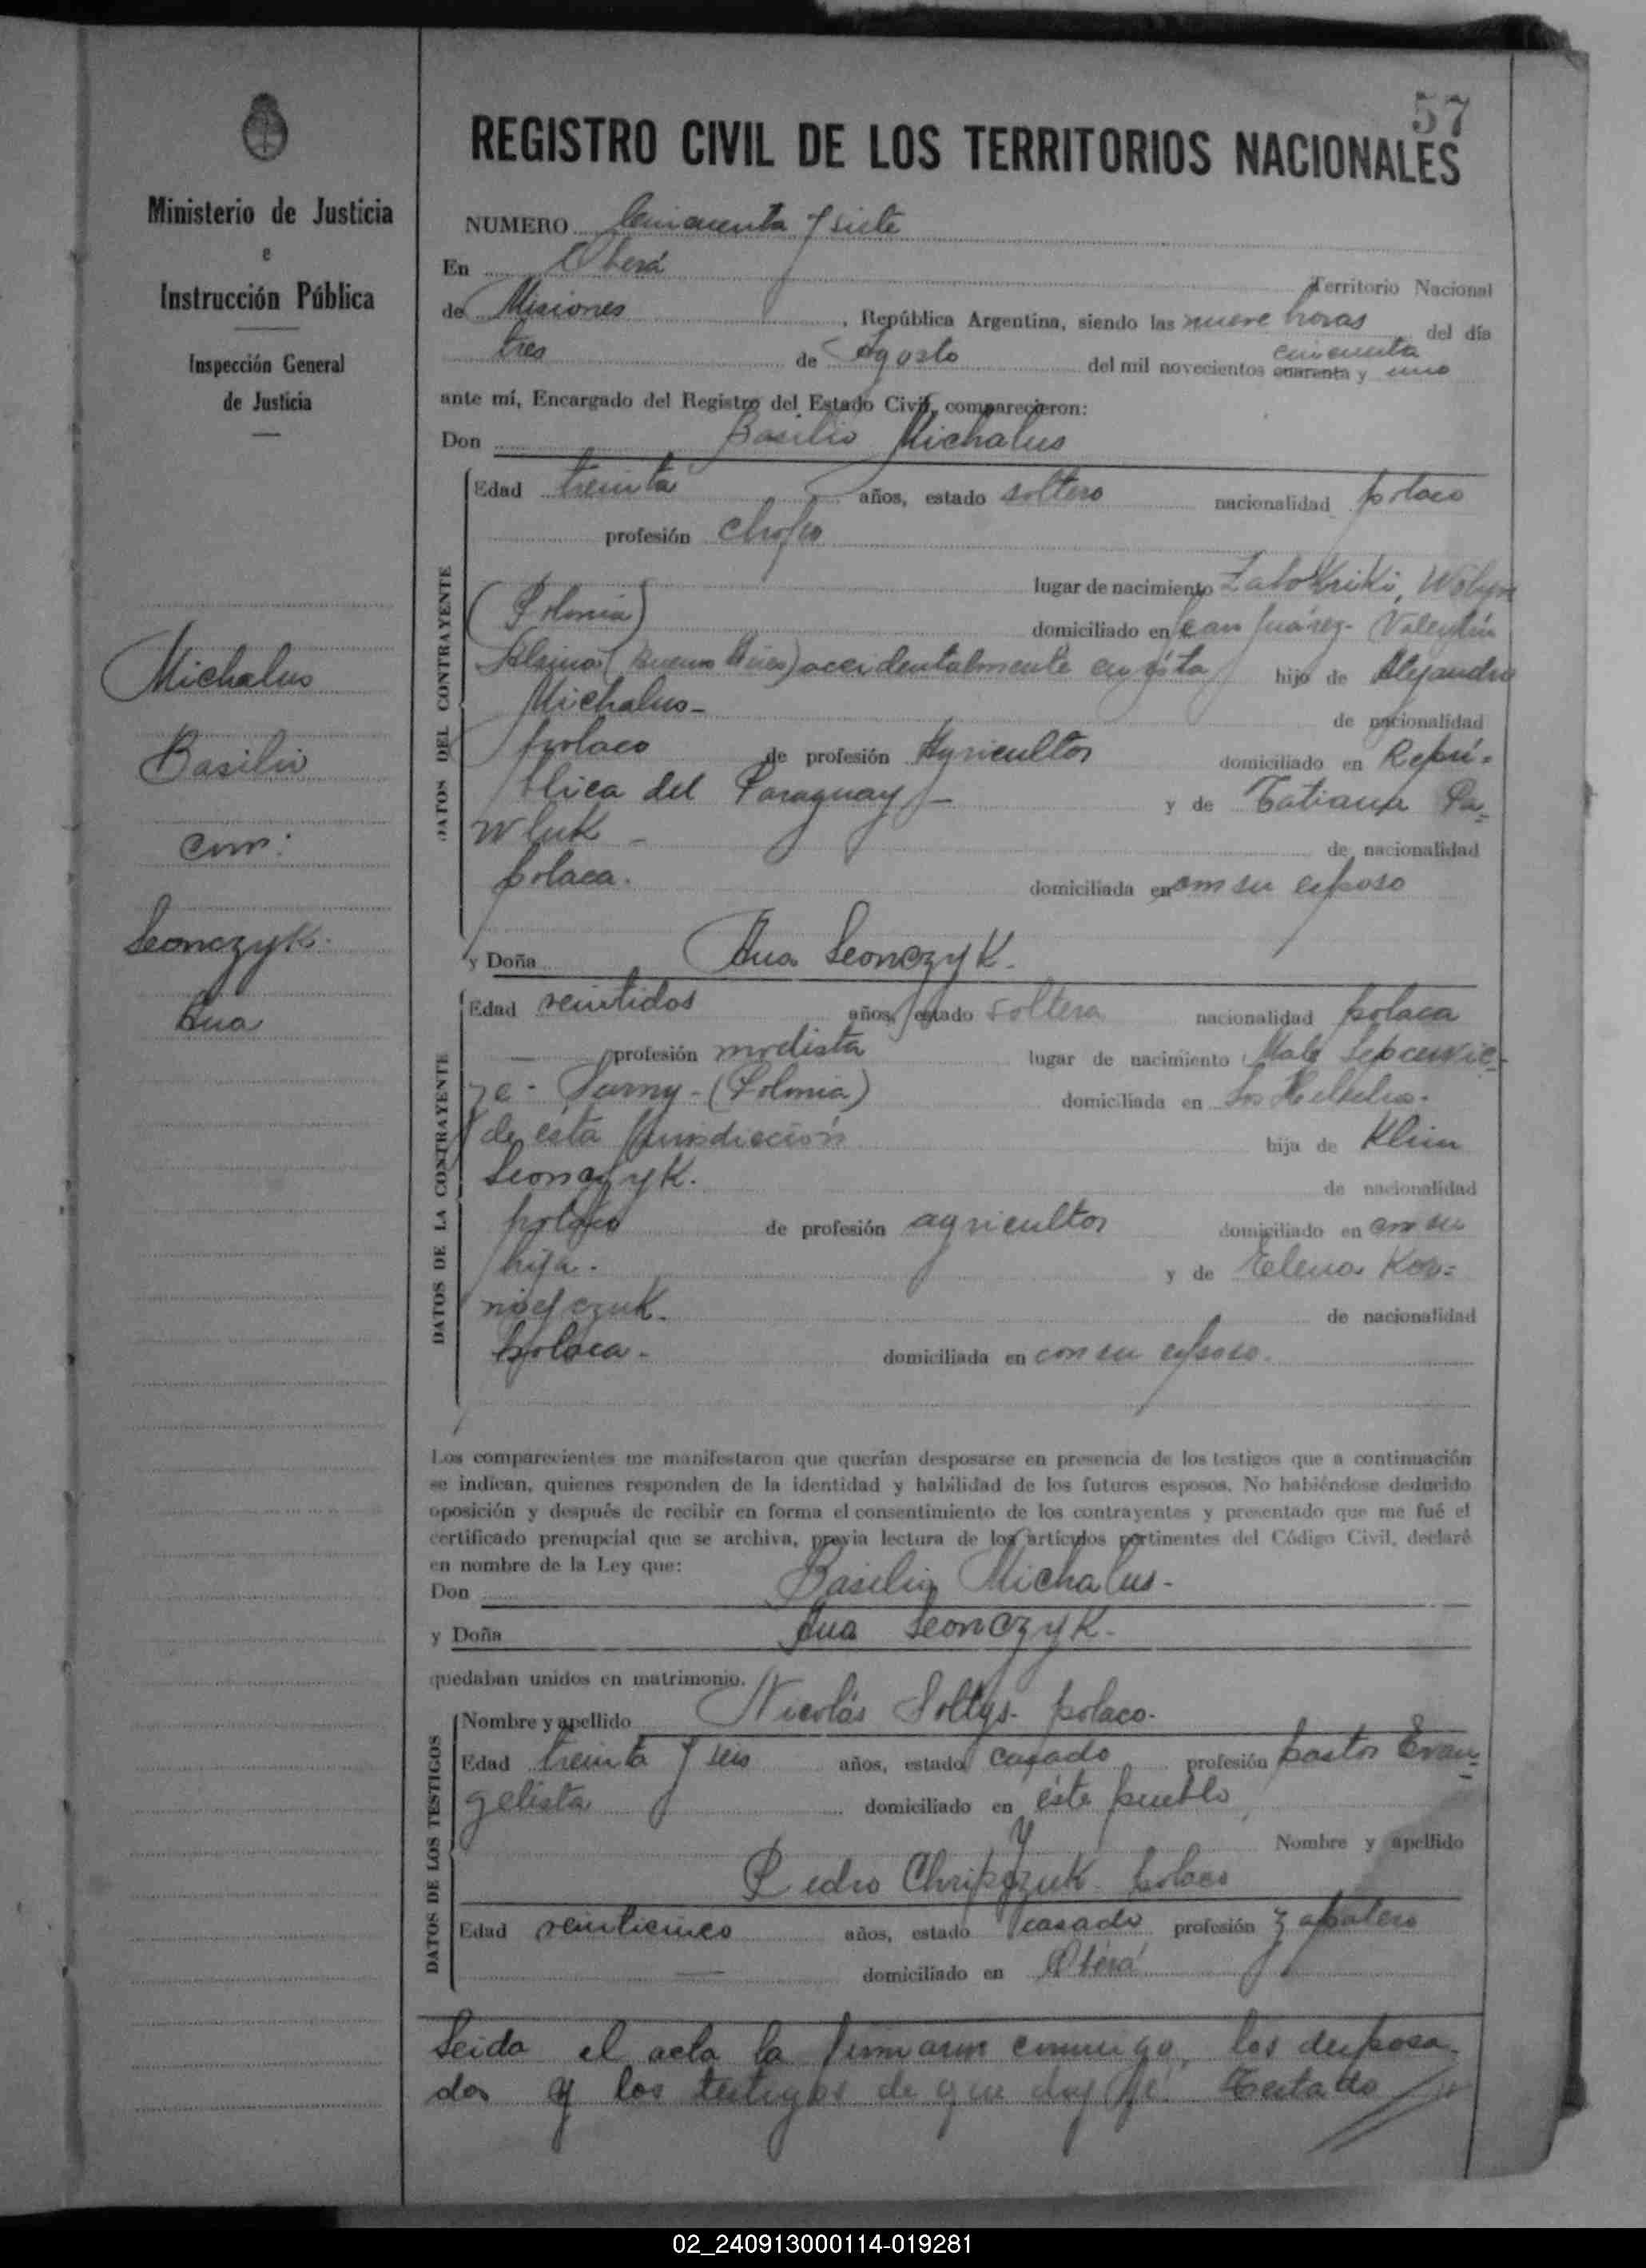 57
REGISTRO CIVIL DE LOS TERRITORIOS NACIONALES
Ministerio de Justicia
e
Instrucción Pública
Inspección General
de Justicia
Michalus
Basilio
con:
Leonczyk.
Ana
NUMERO Cincuenta y siete
En Oberá Territorio Nacional
de Misiones, República Argentina, siendo las nueve horas del día
tres de Agosto del mil novecientos cuarenta cincuenta y uno
ante mí, Encargado del Registro del Estado Civil, comparecieron:
Don Basilio Michalus
DATOS DEL CONTRAYENTE
Edad treinta años, estado soltero nacionalidad polaco
profesión chofer
lugar de nacimiento Zabokriki, Wolyn
(Polonia) domiciliado en Juárez- Valentín
Alsina (Buenos Aires) accidentalmente en ésta hijo de Alejandro
Michalus- de nacionalidad
polaco de profesión Agricultor domiciliado en Repú-
blica del Paraguay- y de Tatiana Pa-
wluk - de nacionalidad
polaca. domiciliada en con su esposo
y Doña Ana Leonczyk.
DATOS DE LA CONTRAYENTE
Edad veintidos años, estado soltera nacionalidad polaca
profesión modista lugar de nacimiento
Sarny-(Polonia) domiciliada en Los Helechos-
de ésta jurisdicción hija de Klim
Leonczyk. de nacionalidad
polaco de profesión agricultor domiciliado en con su
hija. y de Elena
de nacionalidad
polaca. domiciliada en con su esposo.
Los comparecientes me manifestaron que querían desposarse en presencia de los testigos que a continuación
se indican, quienes responden de la identidad y habilidad de los futuros esposos. No habiéndose deducido
oposición y después de recibir en forma el consentimiento de los contrayentes y presentado que me fué el
certificado prenupcial que se archiva, previa lectura de los artículos pertinentes del Código Civil, declaré
en nombre de la Ley que:
Don Basilio Michalus-
y Doña Ana Leonczyk-
quedaban unidos en matrimonio.
DATOS DE LOS TESTIGOS
Nombre y apellido Nicolás Soltys- polaco-
Edad treinta y seis años, estado casado profesión pastor Evan-
gelista domiciliado en éste pueblo
y Nombre y apellido
Pedro Chripczuk- polaco
Edad veinticinco años, estado casado profesión zapatero
domiciliado en Oberá
Leida el acta la firmaron conmigo, los desposa-
dos y los testigos de que doy fé. Testado
02_240913000114-019281